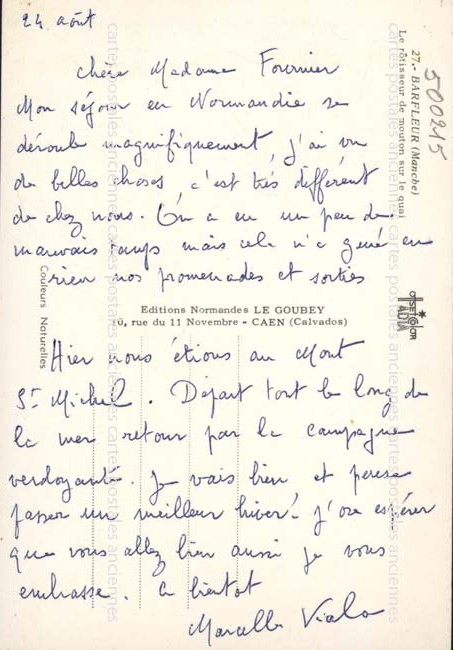 24 août
chère Madame Fournier
Mon séjour en Normandie se
déroule magnifiquement, j'ai vu
de belles choses, c'est très différent
de chez nous. On a eu un peu de
mauvais temps mais cela n'a gêné en
rien nos promenades et sorties
Hier nous étions au Mont
St Michel. Départ tout le long de
la mer retour par la campagne
verdoyante. Je vais bien et pense
passer un meilleur hiver! j'ose espérer
que vous allez bien aussi je vous
embrasse. a bientôt
Marcelle
27.- BARFLEUR (Manche)
Le rôtisseur de mouton sur le quai
500215
Editions Normandes LE GOUBEY
10, rue du 11 Novembre - CAEN (Calvados)
Couleurs Naturelles
cartes postales anciennes
cartes postales anciennes
cartes postales anciennes
cartes postales anciennes